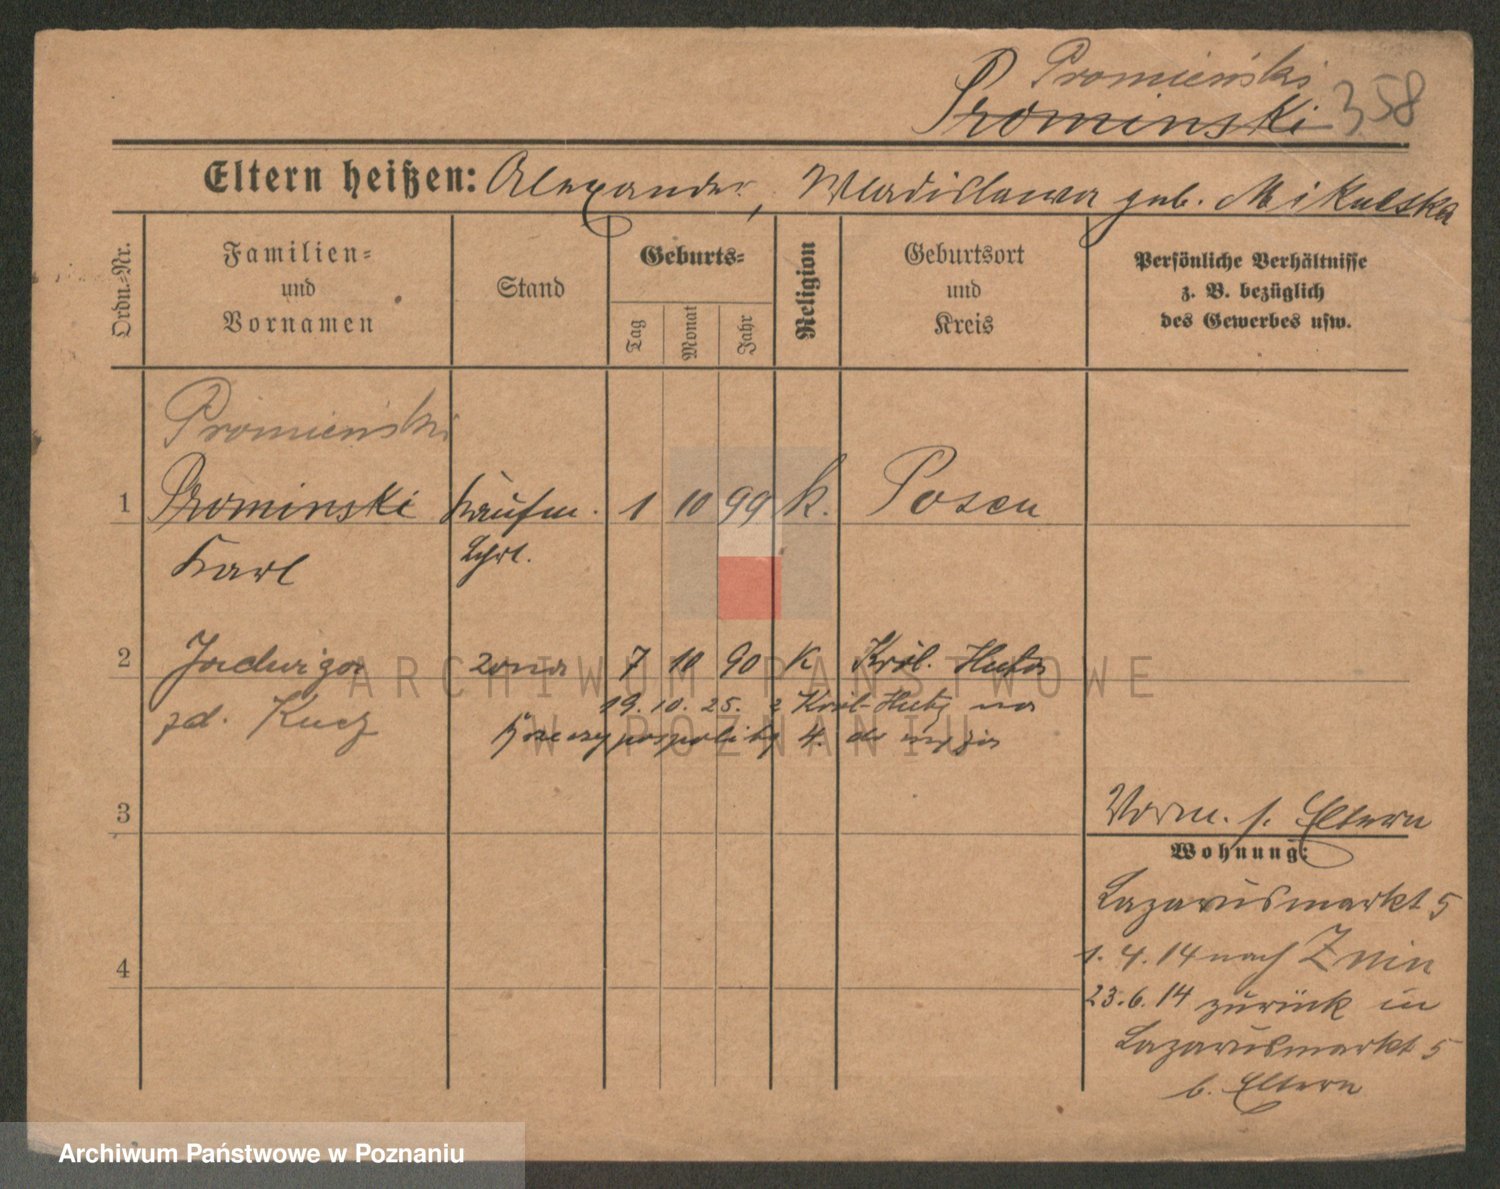 Promieński
Prominski 358
Eltern heißen: Alexander, Wladislawa geb. Mikulska
Ordn.-Nr.
Familien-
und
Vornamen
Stand
Geburts-
Tag
Monat
Jahr
Religion
Geburtsort
und
Kreis
Persönliche Verhältnisse
z. B. bezüglich
des Gewerbes usw.
Promieński
1 Prominski Kaufm. 1 10 99 k. Posen
Karl Lehrl.
2 Jadwiga żona 7 10 90 K Król. Huta
19.10.25. z Król-Huty na
zd. Kucz
4.
3
Vorm. s. Eltern
Wohnung:
Lazarusmarkt 5
1.4.14 nach Znin
4
23.6.14 zurück in
Lazarusmarkt 5
b. Eltern
ARCHIWUM PAŃSTWOWE
W POZNANIU
Archiwum Państwowe w Poznaniu